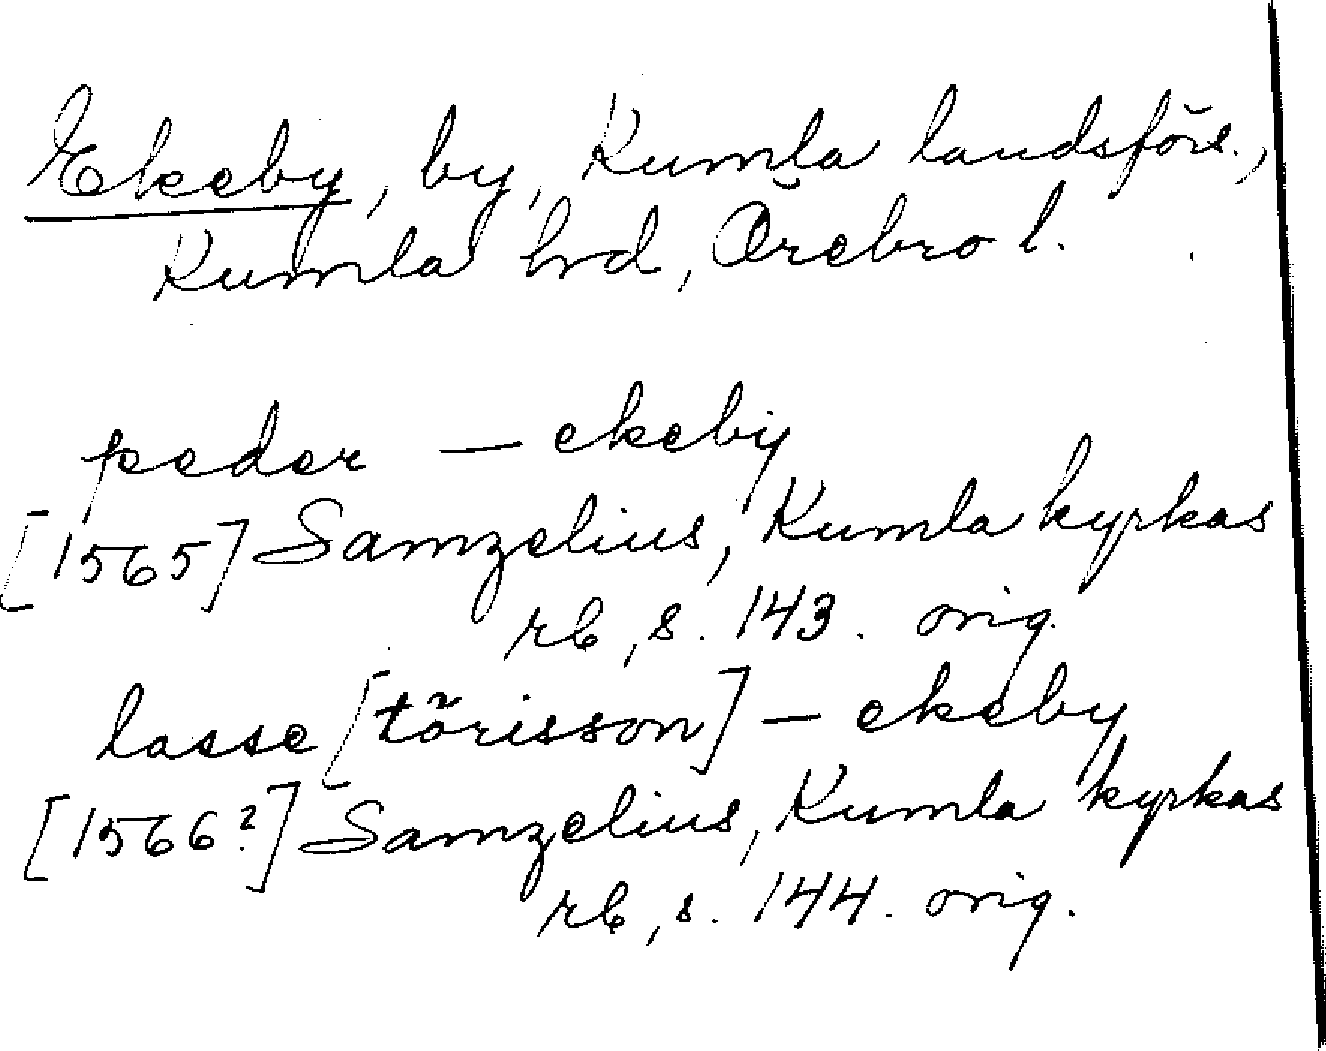 Ekeby, by, Kumla landsförs.,
Kumla hrd, Örebro l.
peder — ekeby
[1565] Samzelius, Kumla kyrkas
rb, s. 143. orig.
lasse [törisson] — ekeby
[1566?] Samzelius, Kumla kyrkas
rb, s. 144. orig.